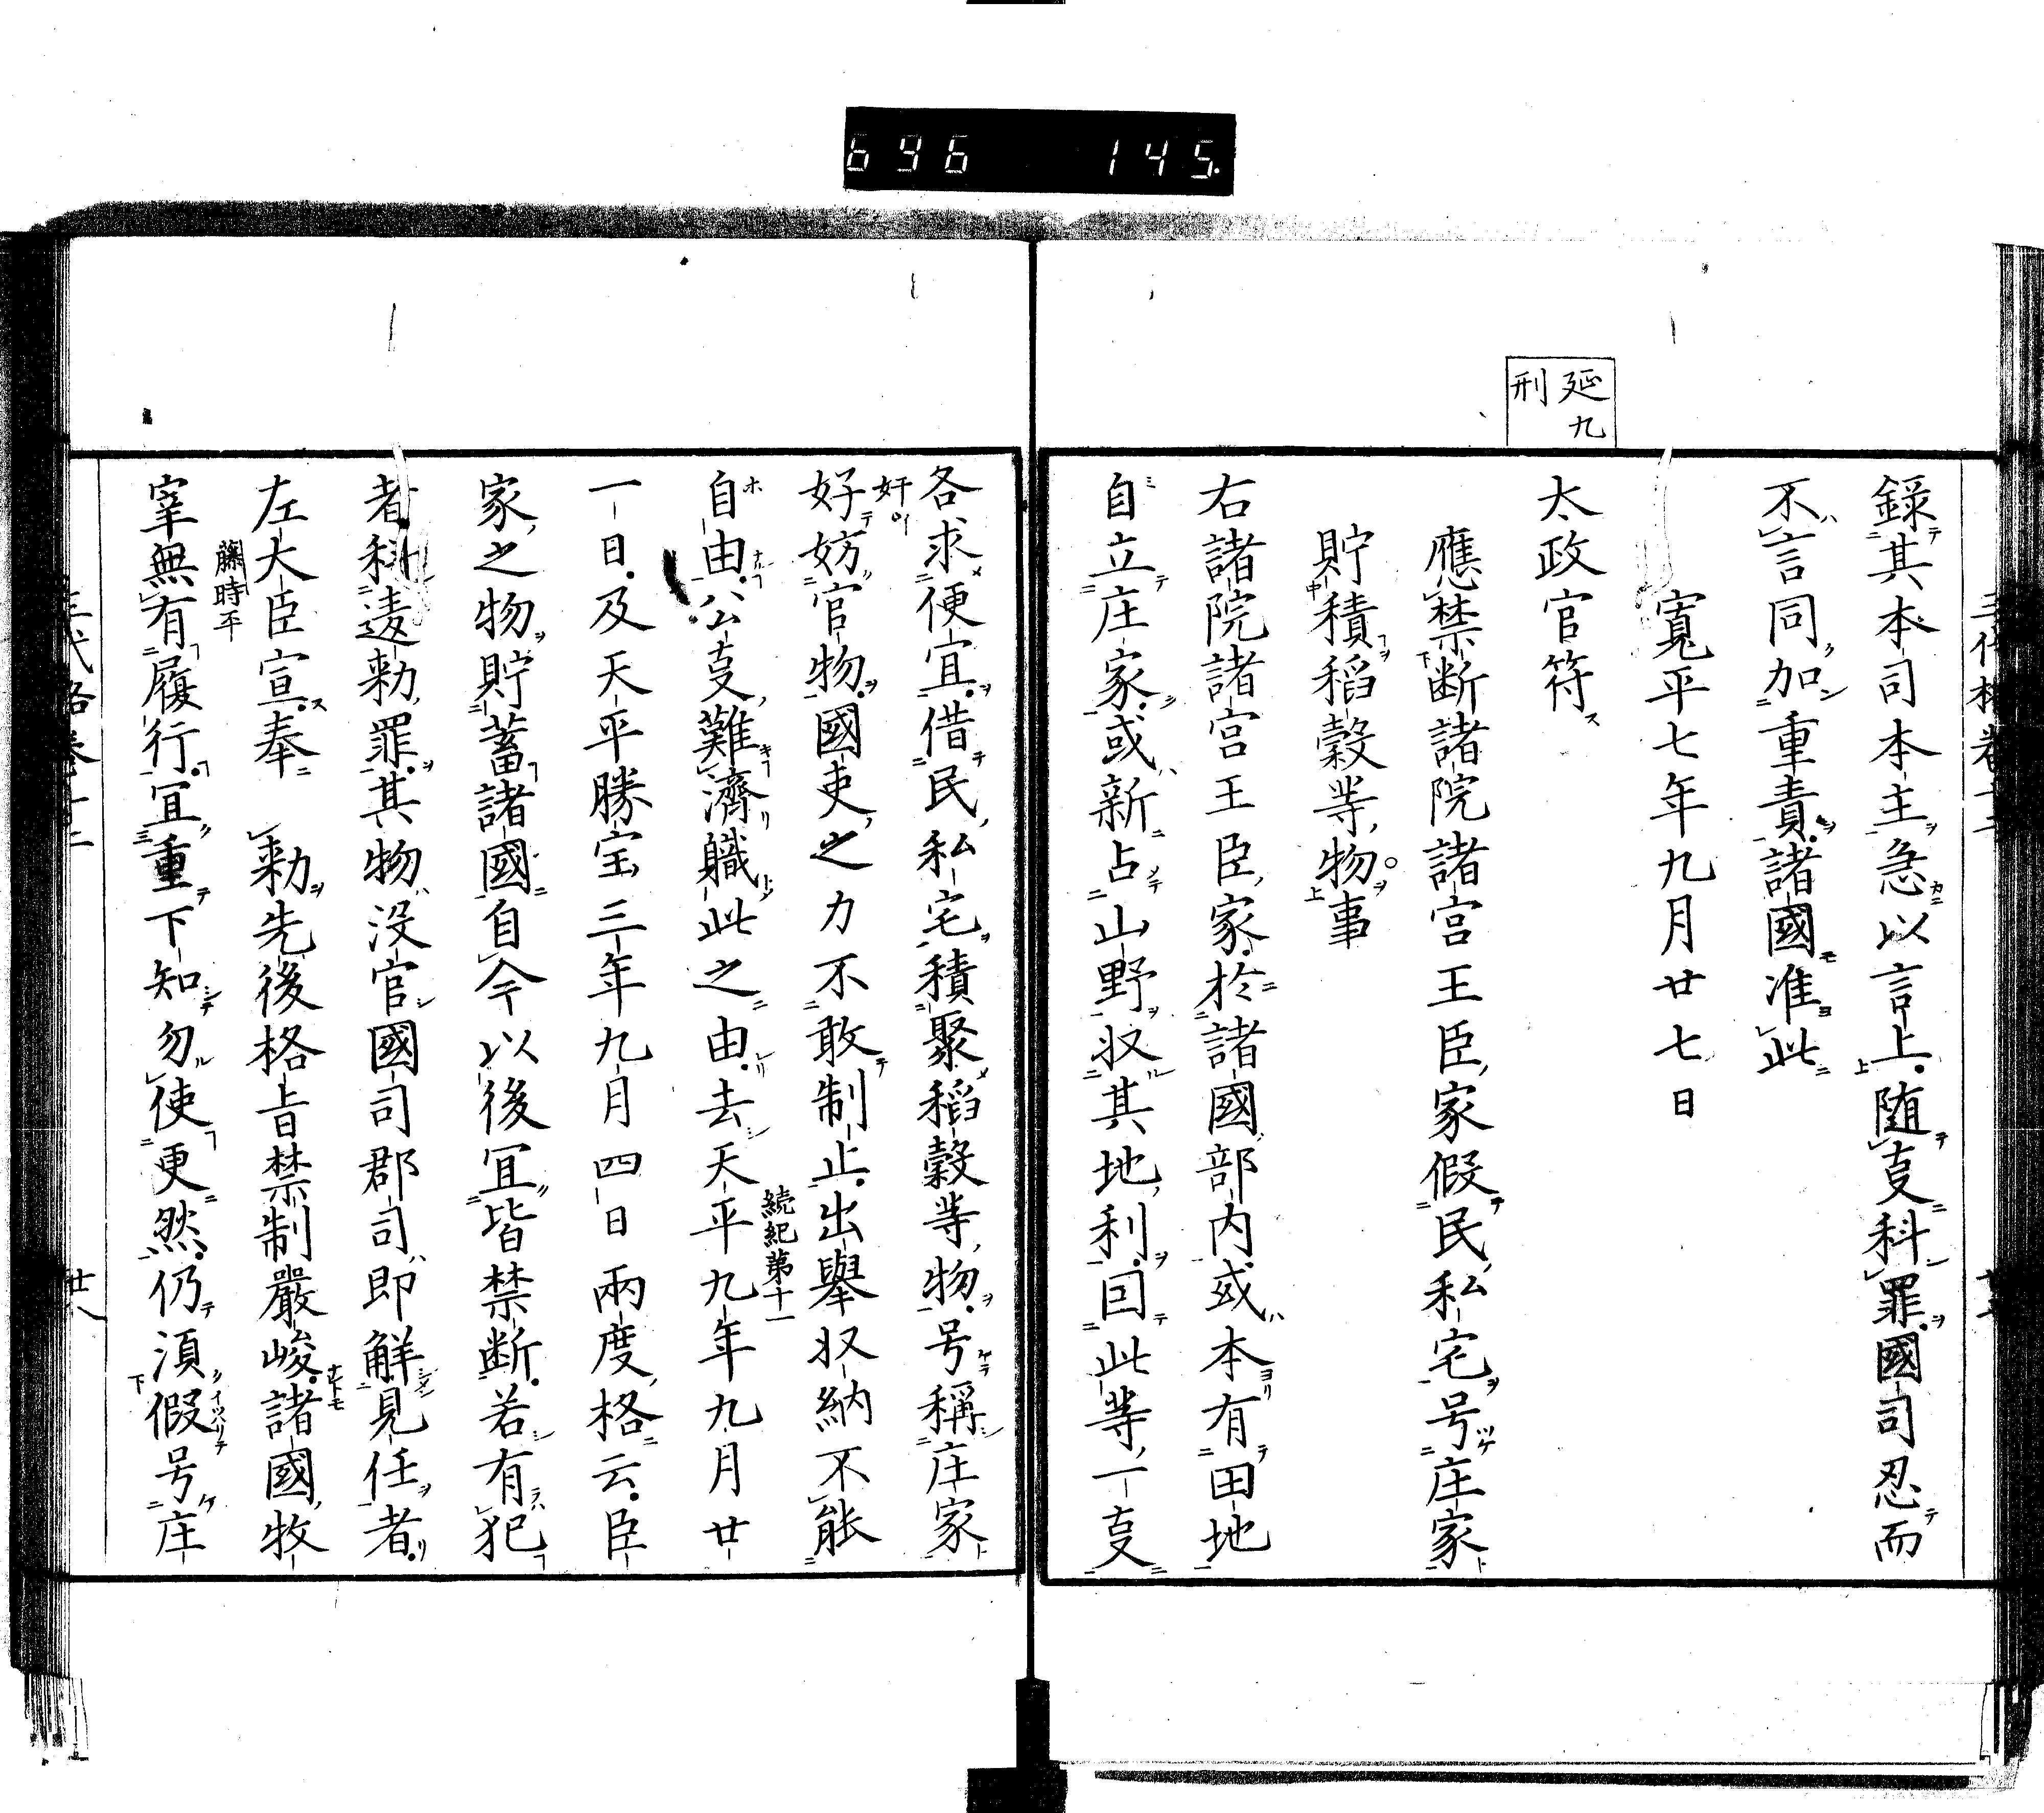 696 145.
延九
刑
録其本司本主急以言上随叓科罪國司忍而
不言同加重責諸國准此
寛平七年九月廿七日
太政官符
應禁断諸院諸宮王臣家假民私宅号庄家
貯積稻穀等物事
右諸院諸宮王臣家於諸國部内或本有田地
自立庄家或新占山野収其地利囙此等一叓
各求便宜借民私宅積聚稻穀等物号稱庄家
奸イ
好妨官物國吏之力不敢制止出舉収納不能
自由公叓難濟職此之由去天平九年九月廿
続紀第十一
一日及天平勝宝三年九月四日兩度格云臣
家之物貯蓄諸國自今以後冝皆禁断若有犯
者科違勅罪其物没官國司郡司即解見任者
左大臣宣奉 勅先後格旨禁制嚴峻諸國牧
藤時平
宰無有履行冝重下知勿使更然仍須假号庄
廿八